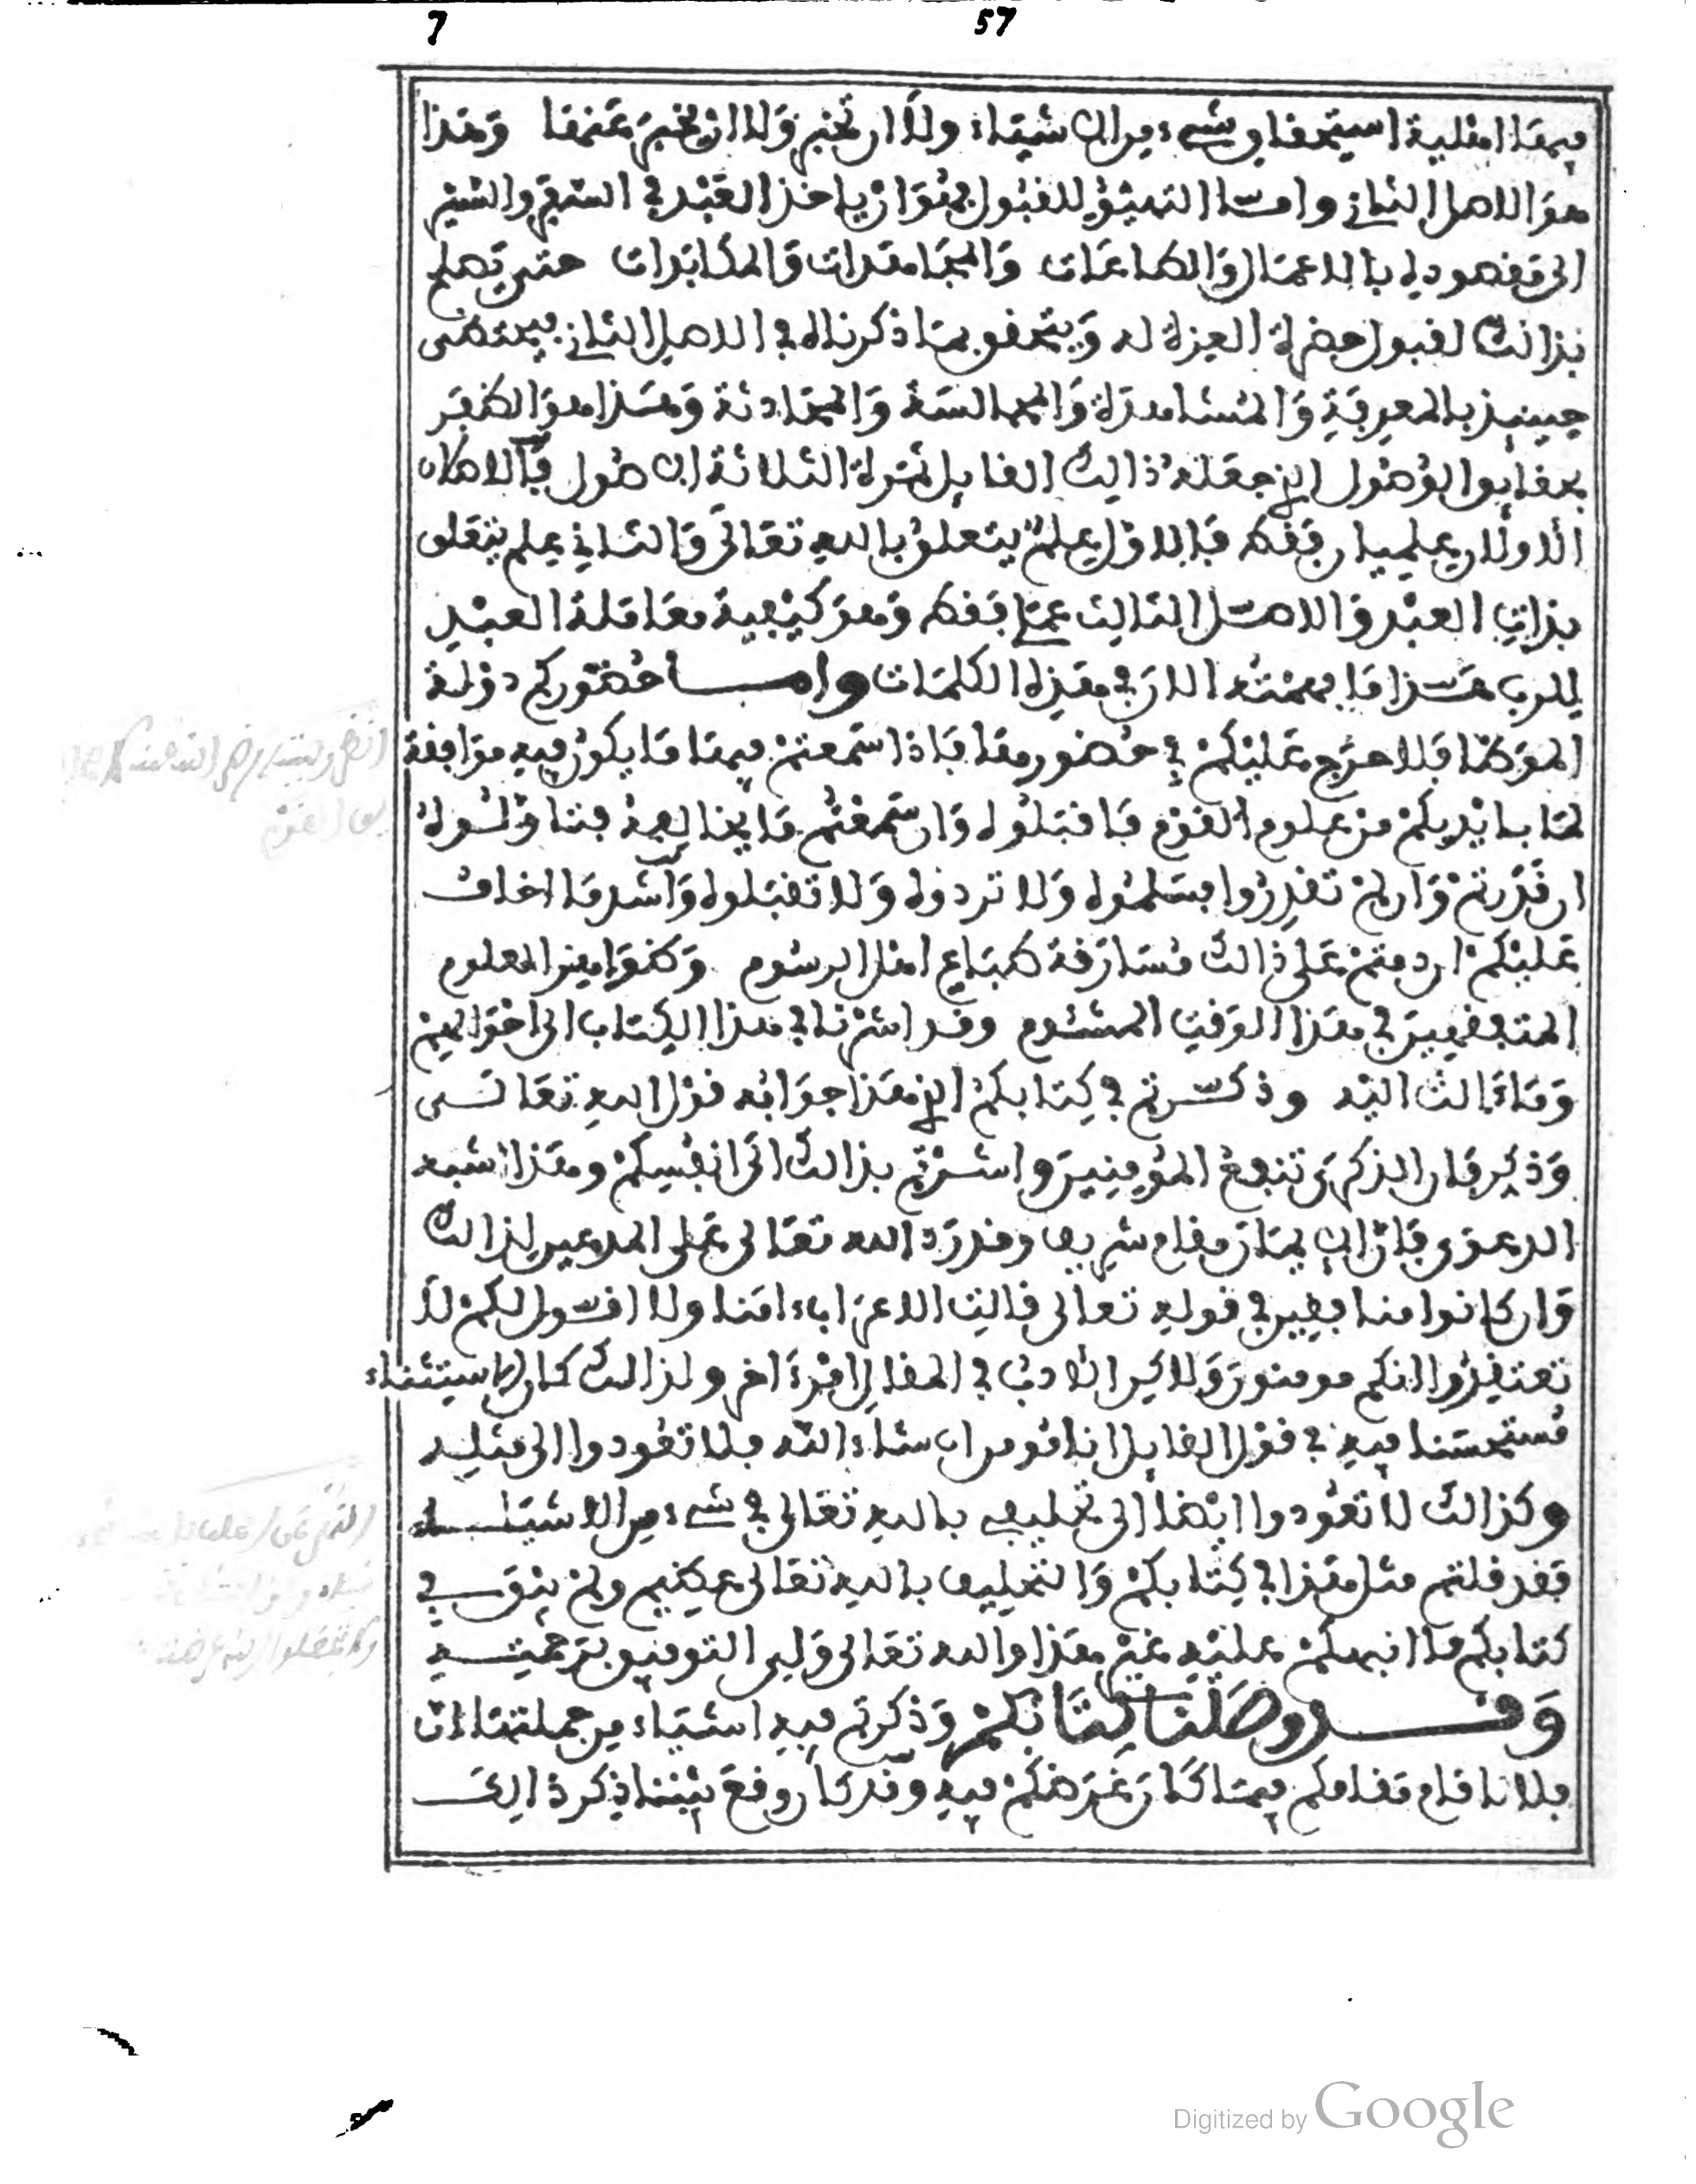 7 57
فيها اهلية استحقاق شيء من الاشياء ولا ان تخبر ولا ان يخبر عنها وهذا
هو الاصل الثاني واما التهيؤ للقبول فهو ان ياخذ العبد في السفر والسير
الى مقصوده بالاعمال والطاعات والمجاهدات والمكابدات حتى يصلح
بذالك لقبول حضرة العزة له ويتحقق بما ذكرناه في الاصل الثاني فيحتضى
حينيذ بالمعرفة والمشاهدة والمجالسة والمحادثة وهذا هو الظفر
بحقايق الوصول الذي جعله ذالك القايل ثمرة الثلاثة الاصول فالاصلان
الاولان علميان فقط فالاول علم يتعلق بالله تعالى والثاني علم يتعلق
بذات العبد والاصل الثالث عملي فقط وهو كيفية معاملة العبد
للرب هذا ما فهمته الان في هذه الكلمات واما حضوركم دولة
الموطا فلا حرج عليكم في حضورها فاذا سمعتم فيها ما يكون فيه موافقة
لما بايديكم من علوم القوم فاقبلوه وان سمعتم ما يخالفه فتاولوه
ان قدرتم وان لم تقدروا فسلموه ولا تردوه ولا تقبلوه واشد ما اخاف
عليكم ان دمتم على ذالك مسارقة طباع اهل الرسوم وطواهر العلوم
المتفقهين في هذا الوقت المشئوم وقد اشرنا في هذا الكتاب الى احوالهم
وماءالت اليه وذكرتم في كتابكم الذي هذا جوابه قول الله تعالى
وذكر فان الذكرى تنفع المومنين واشرتم بذالك الى انفسكم وهذا شبه
الدعوى فان الايمان مقام شريف وقد رد الله تعالى على المدعين لذالك
وان كانوا منافقين في قوله تعالى قالت الاعراب ءامنا ولا اقول لكم لا
تعتقدوا انكم مومنون ولاكن الادب في المقال امر ءاخر ولذالك كان الاستثناء
مستحسنا فيه في قول القايل انا مومن ان شاء الله فلا تعودوا الى مثله
وكذالك لا تعودوا ايضا الى تحليفي بالله تعالى في شيء من الاشياء
فقد قلتم مثل هذا في كتابكم والتحليف بالله تعالى عظيم ولم يبق في
كتابكم ما انبهكم عليه غير هذا والله تعالى ولي التوفيق برحمته
وقد وصلنا كتابكم وذكرتم فيه اشياء من جملتها ان
فلانا قام مقامكم فيما كان غرضكم فيه وقد كان وقع بيننا ذكر ذالك
Digitized by Google